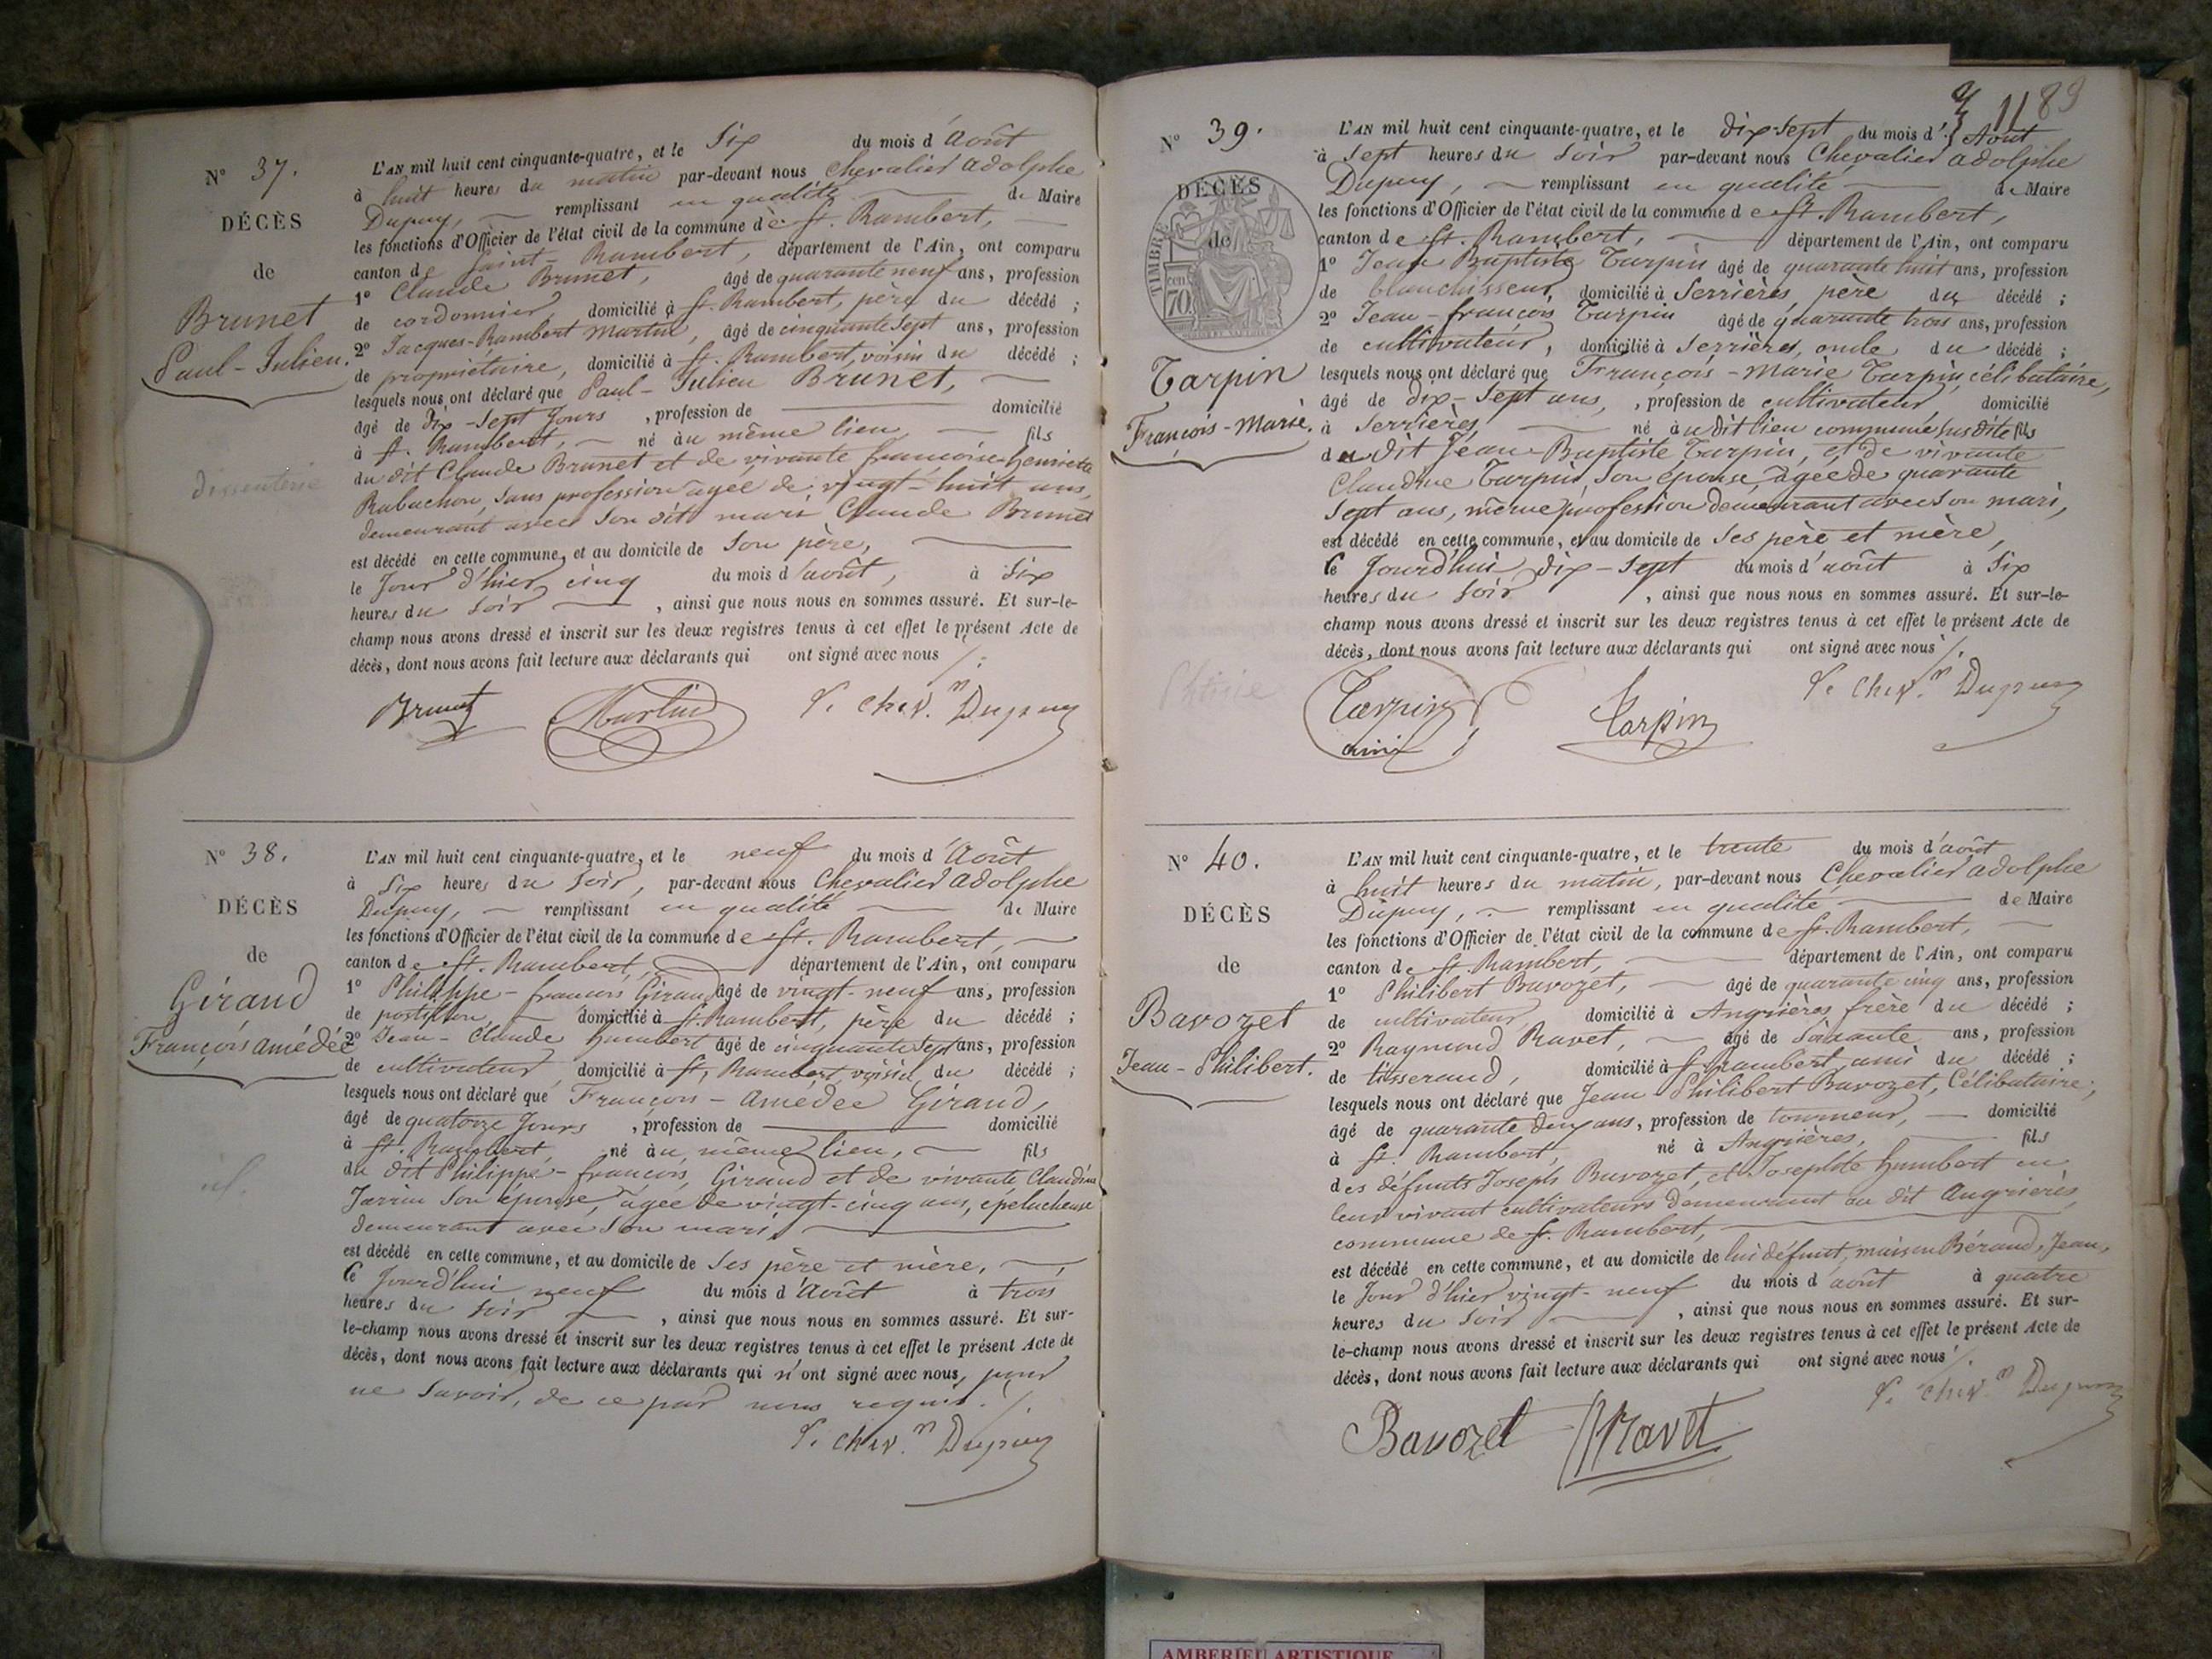 N° 37.
DÉCÈS
de
Brunet
Paul-Julien.
dissenterie
L'AN mil huit cent cinquante-quatre, et le Six du mois d'Août
à huit heures du matin par-devant nous Chevalier Adolphe
Dupuy, remplissant en qualité de Maire
les fonctions d'Officier de l'état civil de la commune de St. Rambert,
canton de Saint-Rambert, département de l'Ain, ont comparu
1° Claude Brunet, âgé de quarante neuf ans, profession
de cordonnier, domicilié à St. Rambert, père du décédé ;
2° Jacques-Rambert Martin, âgé de cinquante sept ans, profession
de propriétaire, domicilié à St. Rambert, voisin du décédé ;
lesquels nous ont déclaré que Paul-Julien Brunet,
âgé de dix-sept jours, profession de domicilié
à St. Rambert, né au même lieu, fils
du dit Claude Brunet et de vivante françoise-henriette
Rabachon, sans profession agée de vingt-huit ans,
demeurant avec son dit mari Claude Brunet
est décédé en cette commune, et au domicile de son père,
le Jour d'hier cinq du mois d'août, à six
heures du soir, ainsi que nous nous en sommes assuré. Et sur-le-
champ nous avons dressé et inscrit sur les deux registres tenus à cet effet le présent Acte de
décès, dont nous avons fait lecture aux déclarants qui ont signé avec nous ./.
Brunet Martin Chev. Dupuy
N° 38.
DÉCÈS
de
Giraud
François amédée
L'AN mil huit cent cinquante-quatre, et le neuf du mois d'Août
à Six heures du soir, par-devant nous Chevalier Adolphe
Dupuy, remplissant en qualité de Maire
les fonctions d'Officier de l'état civil de la commune de St. Rambert,
canton de St. Rambert, département de l'Ain, ont comparu
1° Philippe-françois Giraud âgé de vingt-neuf ans, profession
de postillon, domicilié à St. Rambert, père du décédé ;
2° Jean-Claude humbert âgé de cinquante sept ans, profession
de cultivateur, domicilié à St, Rambert, voisin du décédé ;
lesquels nous ont déclaré que François-Amédée Giraud,
âgé de quatorze Jours, profession de domicilié
à St. Rambert, né au même lieu, fils
du dit Philippe-françois Giraud et de vivante Claudine
Jarrin son épouse, agée de vingt-cinq ans, épelucheuse
demeurant avec son mari,
est décédé en cette commune, et au domicile de ses père et mère,
Ce Jourd'hui neuf du mois d'Août à trois
heures du soir, ainsi que nous nous en sommes assuré. Et sur-
le-champ nous avons dressé et inscrit sur les deux registres tenus à cet effet le présent Acte de
décès, dont nous avons fait lecture aux déclarants qui n'ont signé avec nous, pour
ne savoir, de ce par nous requis. /.
Chev. Dupuy
11 89
N° 39.
DÉCÈS
de
TIMBRE
cen 70
Tarpin
François-Marie.
L'AN mil huit cent cinquante-quatre, et le dix-sept du mois d'Août
à Sept heures du soir par-devant nous Chevalier Adolphe
Dupuy, remplissant en qualité de Maire
les fonctions d'Officier de l'état civil de la commune de St. Rambert,
canton de St. Rambert, département de l'Ain, ont comparu
1° Jean Baptiste Tarpin âgé de quarante huit ans, profession
de blanchisseur, domicilié à Serrières, père du décédé ;
2° Jean-françois Tarpin âgé de quarante trois ans, profession
de cultivateur, domicilié à Serrières, oncle du décédé ;
lesquels nous ont déclaré que François-Marie Tarpin, célibataire,
âgé de dix-sept ans, profession de cultivateur, domicilié
à Serrières, né au dit lieu commune susdite fils
du dit Jean-Baptiste Tarpin, et de vivante
Claudine Tarpin son épouse, agée de quarante
sept ans, même profession demeurant avec son mari,
est décédé en cette commune, et au domicile de ses père et mère,
Ce Jourd'hui dix-sept du mois d'août à Six
heures du soir, ainsi que nous nous en sommes assuré. Et sur-le-
champ nous avons dressé et inscrit sur les deux registres tenus à cet effet le présent Acte de
décès, dont nous avons fait lecture aux déclarants qui ont signé avec nous ./.
Tarpin Tarpin Chev. Dupuy
N° 40.
DÉCÈS
de
Bavozet
Jean-Philibert.
L'AN mil huit cent cinquante-quatre, et le trente du mois d'août
à huit heures du matin, par-devant nous Chevalier Adolphe
Dupuy, remplissant en qualité de Maire
les fonctions d'Officier de l'état civil de la commune de St. Rambert,
canton de St. Rambert, département de l'Ain, ont comparu
1° Philibert Bavozet, âgé de quarante cinq ans, profession
de cultivateur domicilié à Angrières frère du décédé ;
2° Raymond Ravet, âgé de soixante ans, profession
de tisserand, domicilié à St Rambert, ami du décédé ;
lesquels nous ont déclaré que Jean Philibert Bavozet, Célibataire,
âgé de quarante deux ans, profession de tourneur, domicilié
à St. Rambert, né à Angrières, fils
des défunts Joseph Bavozet, et Josephte humbert en
leur vivant cultivateurs demeurant au dit Angrières,
commune de St. Rambert,
est décédé en cette commune, et au domicile de lui défunt, maison Béraud, Jean,
le Jour d'hier vingt-neuf du mois d'août à quatre
heures du soir, ainsi que nous nous en sommes assuré. Et sur-
le-champ nous avons dressé et inscrit sur les deux registres tenus à cet effet le présent Acte de
décès, dont nous avons fait lecture aux déclarants qui ont signé avec nous ./.
Bavozet Ravet Chev. Dupuy
AMBERIEU ARTISTIQUE